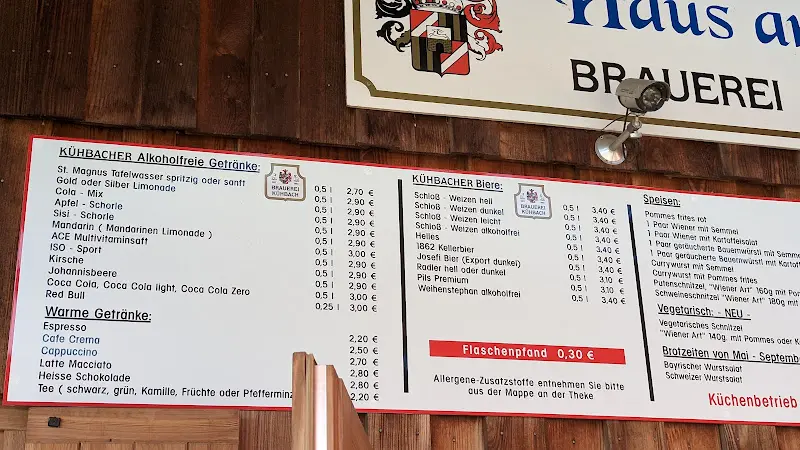 Haus a
BRAUEREI
KÜHBACHER Alkoholfreie Getränke:
BRAUEREI KÜHBACH
St. Magnus Tafelwasser spritzig oder sanft 0,5 l 2,70 €
Gold oder Silber Limonade 0,5 l 2,90 €
Cola - Mix 0,5 l 2,90 €
Apfel - Schorle 0,5 l 2,90 €
Sisi - Schorle 0,5 l 2,90 €
Mandarin ( Mandarinen Limonade ) 0,5 l 2,90 €
ACE Multivitaminsaft 0,5 l 3,00 €
ISO - Sport 0,5 l 2,90 €
Kirsche 0,5 l 2,90 €
Johannisbeere 0,5 l 2,90 €
Coca Cola, Coca Cola light, Coca Cola Zero 0,5 l 3,00 €
Red Bull 0,25 l 3,00 €
Warme Getränke:
Espresso 2,20 €
Cafe Crema 2,50 €
Cappuccino 2,70 €
Latte Macciato 2,80 €
Heisse Schokolade 2,80 €
Tee ( schwarz, grün, Kamille, Früchte oder Pfefferminz 2,20 €
KÜHBACHER Biere:
BRAUEREI KÜHBACH
Schloß - Weizen hell 0,5 l 3,40 €
Schloß - Weizen dunkel 0,5 l 3,40 €
Schloß - Weizen leicht 0,5 l 3,40 €
Schloß - Weizen alkoholfrei 0,5 l 3,40 €
Helles 0,5 l 3,10 €
1862 Kellerbier 0,5 l 3,40 €
Josefi Bier (Export dunkel) 0,5 l 3,40 €
Radler hell oder dunkel 0,5 l 3,10 €
Pils Premium 0,5 l 3,10 €
Weihenstephan alkoholfrei 0,5 l 3,40 €
Flaschenpfand 0,30 €
Allergene-Zusatzstoffe entnehmen Sie bitte
aus der Mappe an der Theke
Speisen:
Pommes frites rot
1 Paar Wiener mit Semmel
1 Paar Wiener mit Kartoffelsalat
1 Paar geräucherte Bauernwürstl mit Semmel
1 Paar geräucherte Bauernwürstl mit Kartoff
Currywurst mit Semmel
Currywurst mit Pommes frites
Putenschnitzel, "Wiener Art" 160g mit Pomm
Schweineschnitzel "Wiener Art" 180g mit
Vegetarisch: - NEU -
Vegetarisches Schnitzel
"Wiener Art" 140g. mit Pommes oder K
Brotzeiten von Mai - Septemb
Bayrischer Wurstsalat
Schweizer Wurstsalat
Küchenbetrieb